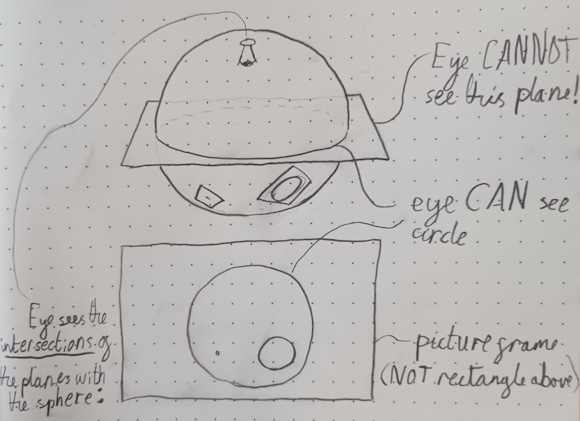 Eye CANNOT
see this plane!
eye CAN see
circle
Eye sees the
intersections of
the planes with
the sphere:
picture frame
(NOT rectangle above)